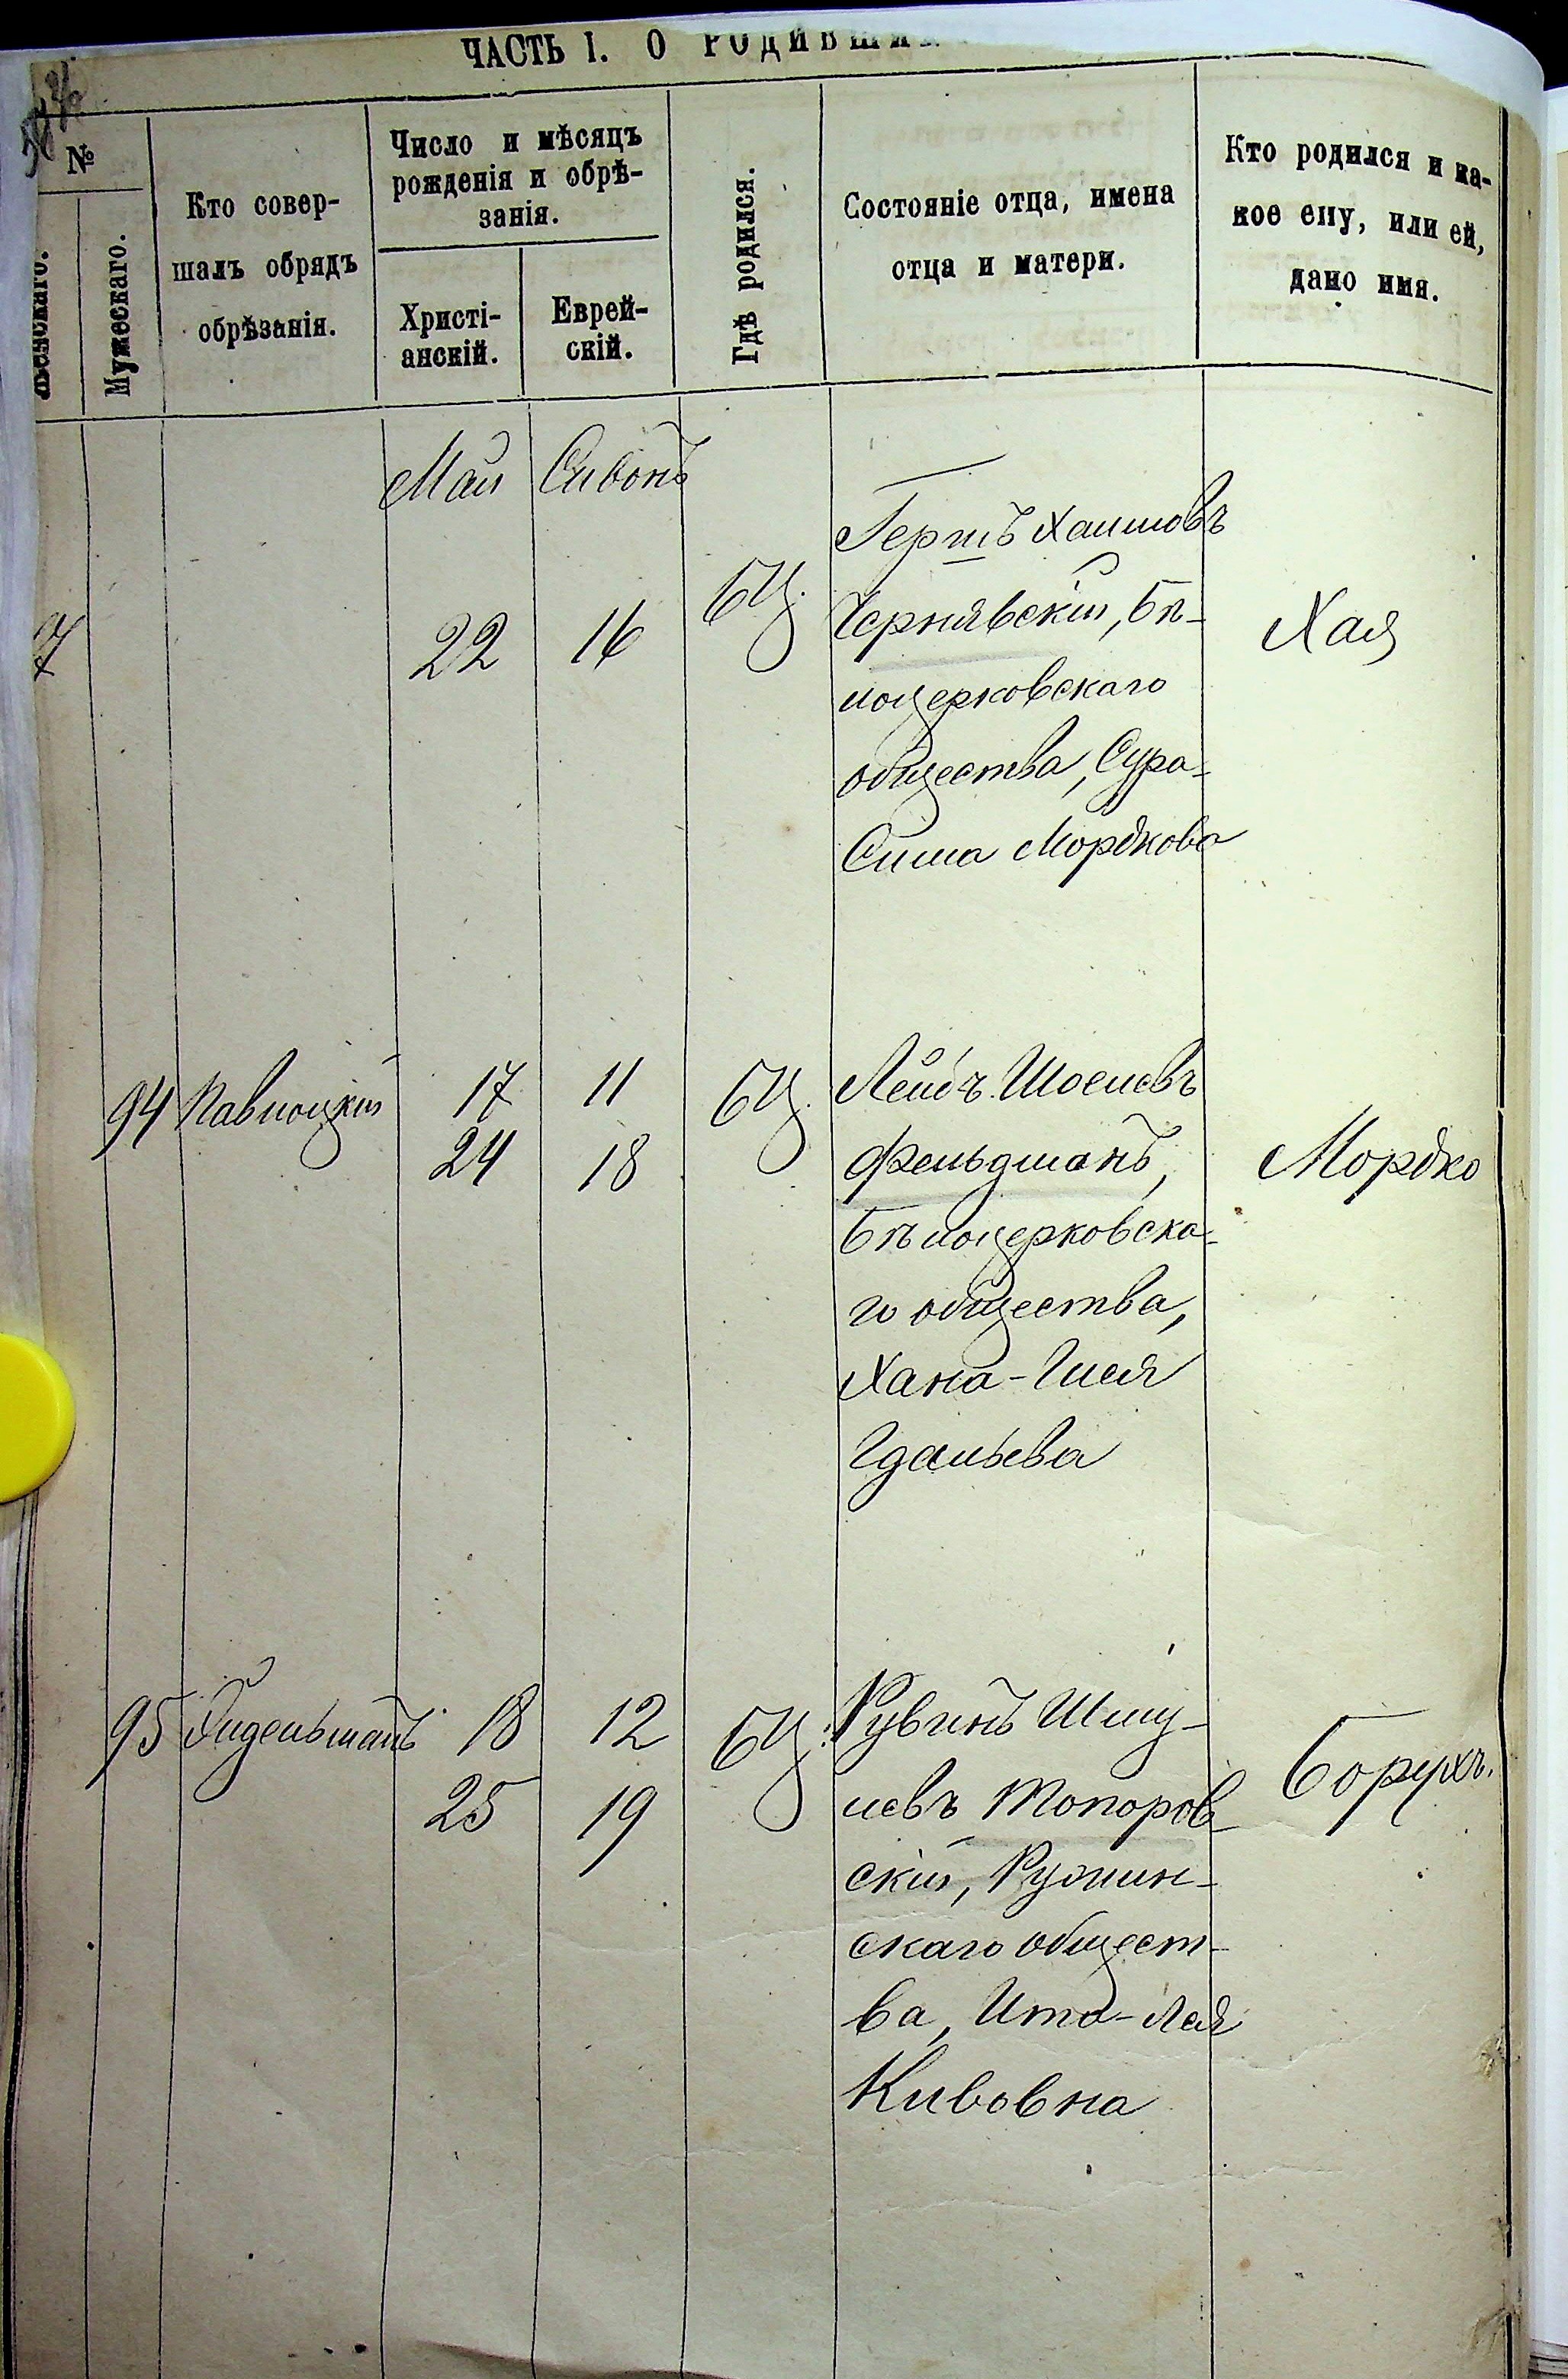 ЧАСТЬ I. О РОДИВШИХ
№
Женскаго.
Мужескаго.
Кто совер-
шалъ обрядъ
обрѣзанія.
Число и мѣсяцъ
рожденія и обрѣ-
занія.
Христі-
анскій.
Еврей-
скій.
Гдѣ родился.
Состояніе отца, имена
отца и матери.
Кто родился и ка-
кое ему, или ей,
дано имя.
Май Сивонъ
7 22 16 БЦ.
Гершъ Хаимовъ
Чернявскій, Бѣ-
лоцерковскаго
общества, Сура-
Сима Мордкова
Хая
94 Павлоцкій 17 11 БЦ.
24 18
Лейбъ Шоелевъ
Фельдманъ,
Бѣлоцерковска-
го общества,
Хана-Гися
Гдальева
Мордко
95 18 12 БЦ.
25 19
Рувинъ Шму-
левъ Топоров-
скій, Ружин-
скаго общест-
ва, Ита-Лая
Кивовна
Борухъ.